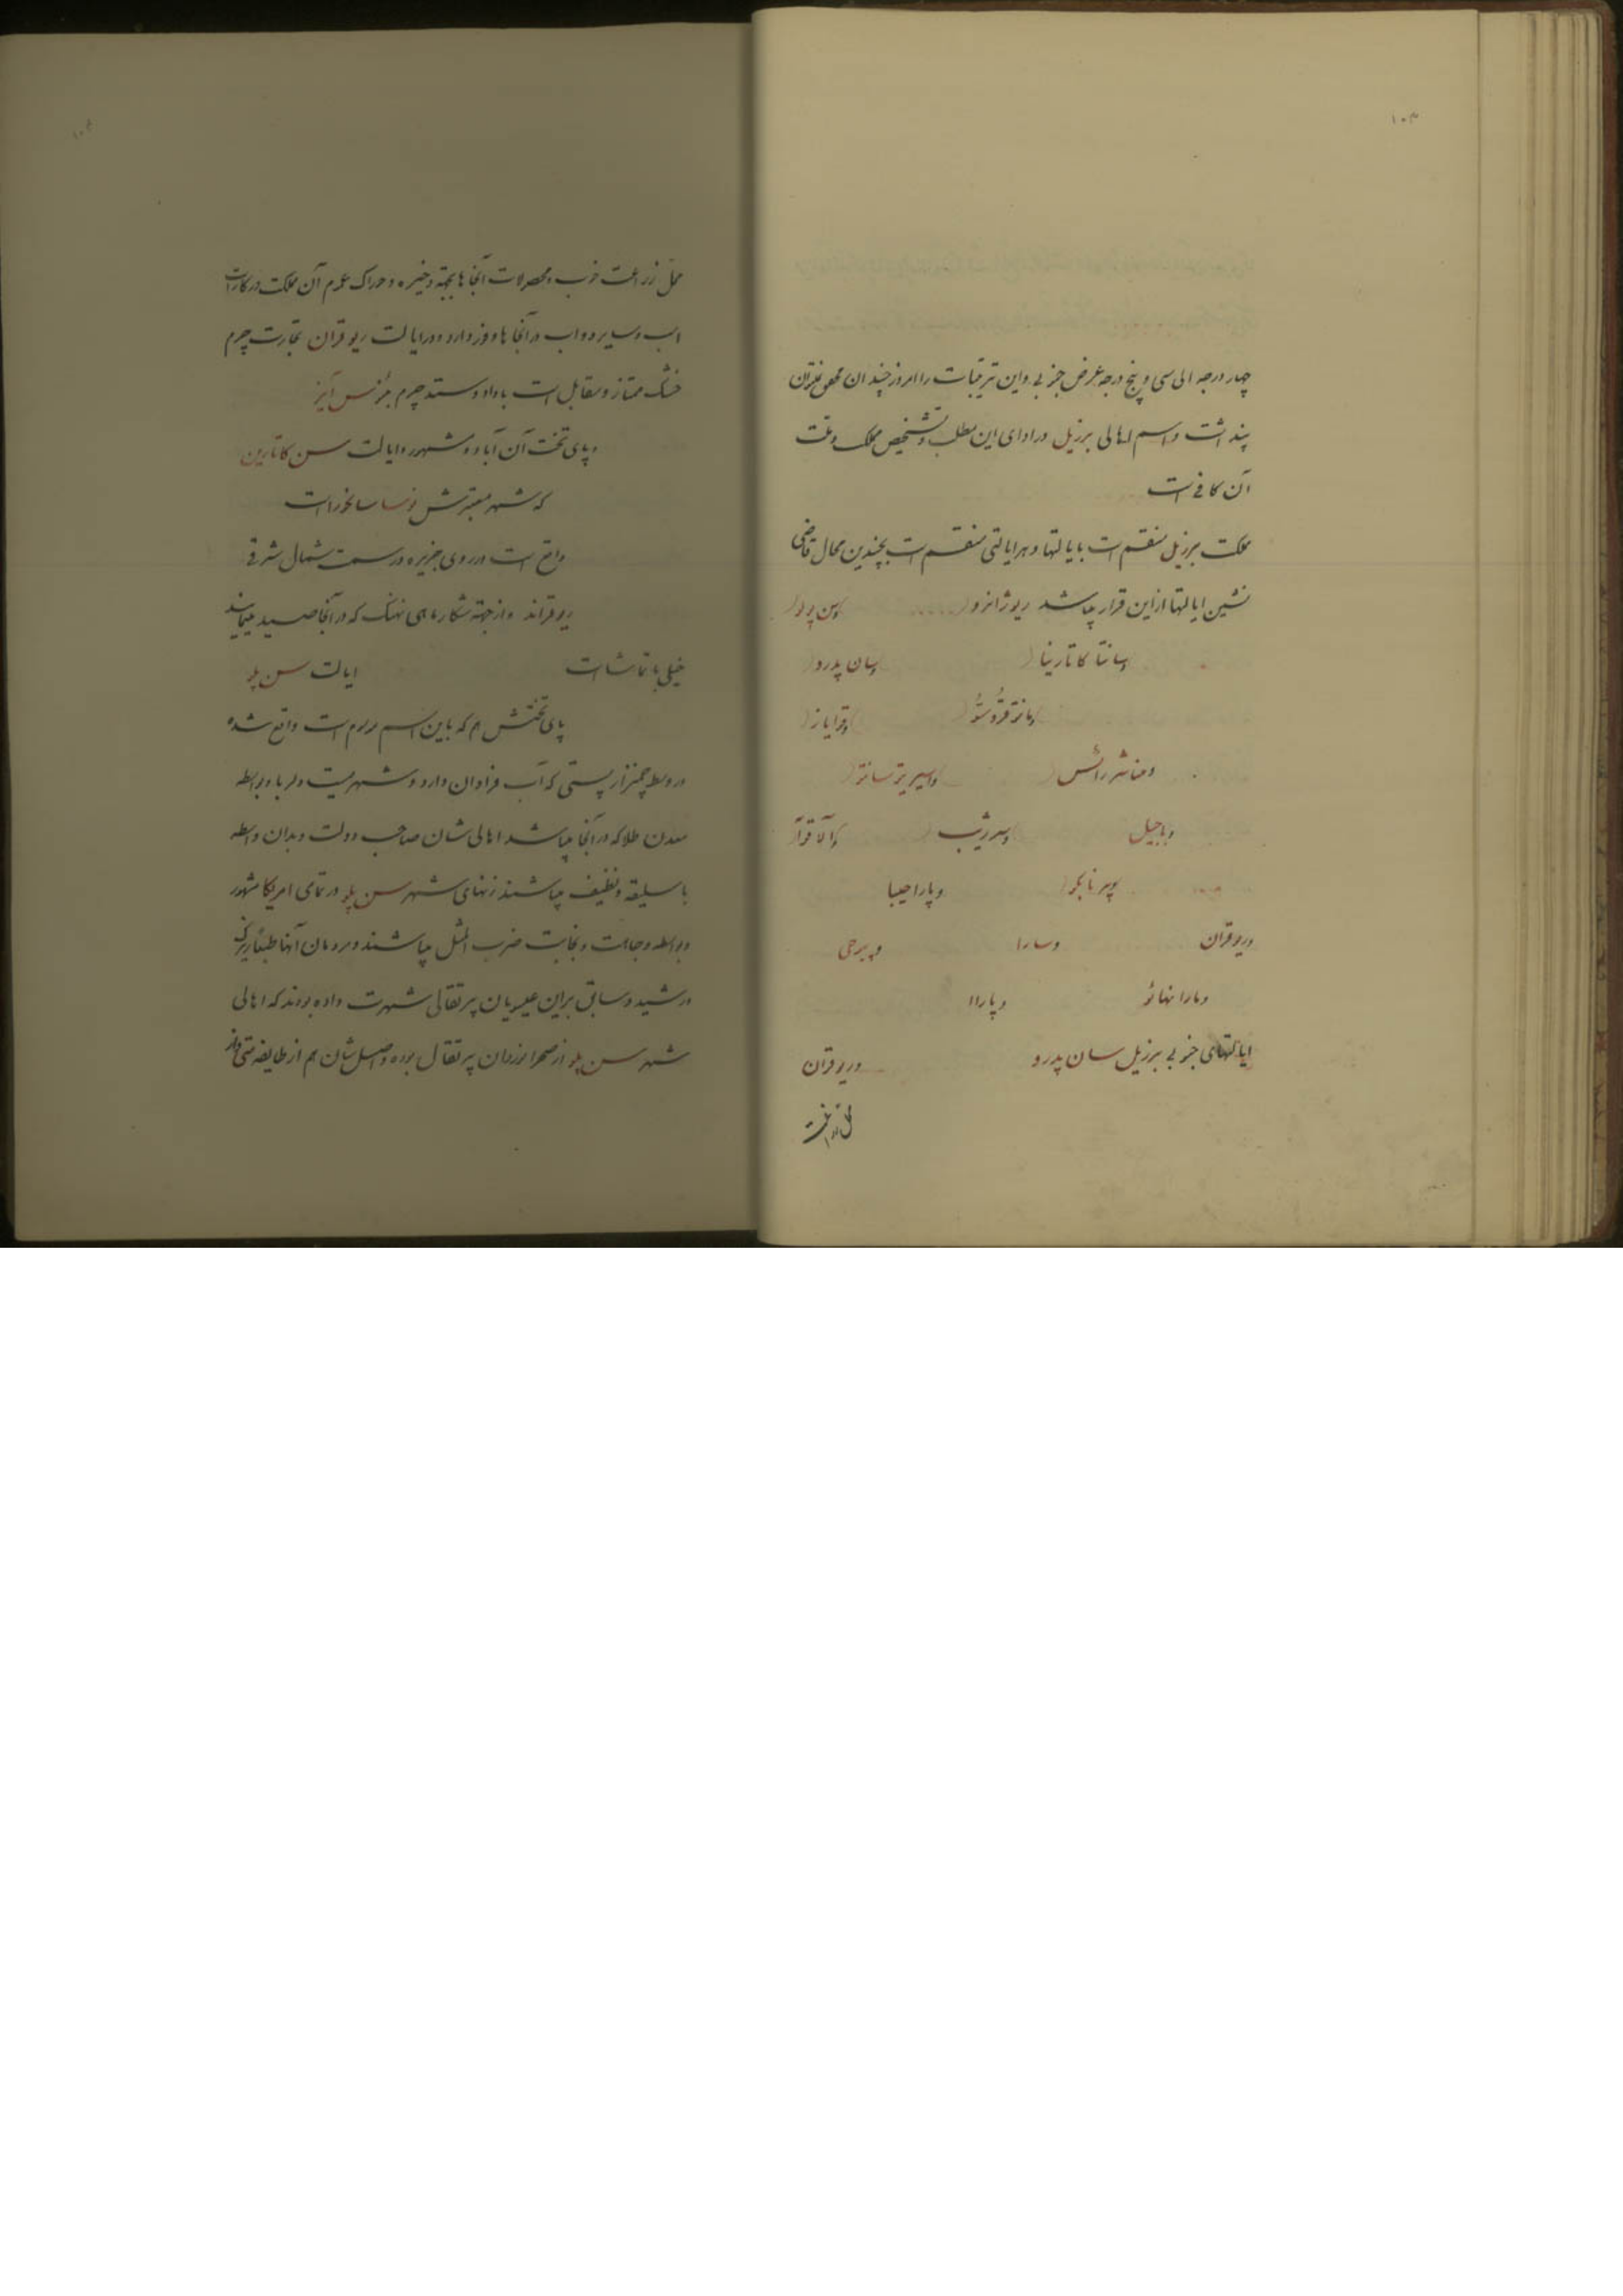 ۱۰۳
چهار درجه الی سی و پنج درجه عرض جنوبی و این ترتیبات را امروز چندان محقق نتوان
پنداشت و اسم اهالی برزیل در ادای این مطلب و تشخیص مملکت و ملت
آن کافی است
مملکت برزیل منقسم است بایالتها و هر ایالتی منقسم است بچندین محال قاضی
نشین ایالتها از این قرار میباشد ریوژانرو و سن پولو
وسانتا کاتارینا وسان پدرو
وماتوقروسو وقویاز
ومناشررائس واسپریتو سانتو
وباجیل وسرژیپ وآلاقوآز
وپرنامبکو وپاراحیبا
وریوقران وسارا وپیرحی
ومارانهائو وپاراا
ایالتهای جنوبی برزیل سان پدرو وریوقران
محل زراعت
۱۰۴
محل زراعت خوب و محصولات آنجاها بجهة ذخیره و خوراک عموم آن مملکت در کار است
اسب و سایر دواب در آنجاها وفور دارد و در ایالت ریوقران تجارت چرم
خشک ممتاز و مقابل است با داد و ستد چرم بوئنس آیرز
و پای تخت آن آباد و مشهور و ایالت سن کاتارین
که شهر معتبرش
واقع است در روی جزیره در سمت شمال شرقی
ریوقراند و از جهة شکار ماهی نهنگ که در آنجا صید مینمایند
خیلی با تماشاست ایالت سن پلو
پای تختش هم که باین اسم موسوم است واقع شده
در وسط چمنزار پستی که آب فراوان دارد و شهریست دلربا و بواسطه
معدن طلا که در آنجا میباشد اهالی شان صاحب دولت و بدان واسطه
با سلیقه و نظیف میباشند زنهای شهر سن پلو در تمامی امریکا مشهور
و بواسطه وجاهت و نجابت ضرب المثل میباشند و مردمان آنها طبعاً زیرک
و رشید و سابق بر این عیسویان پرتقالی شهرت داده بودند که اهالی
شهر سن پلو از صحرانوردان پرتقال بوده و اصل شان هم از طایفه